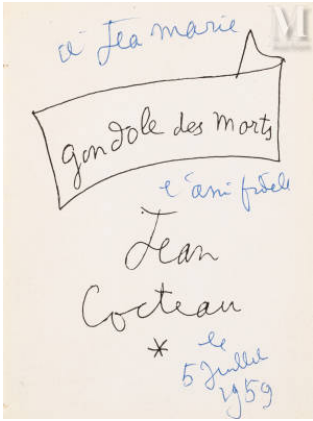 à Jea marie
gondole des morts
l'ami fidele
Jean
Cocteau
*
le
5 Juillet
1959
M